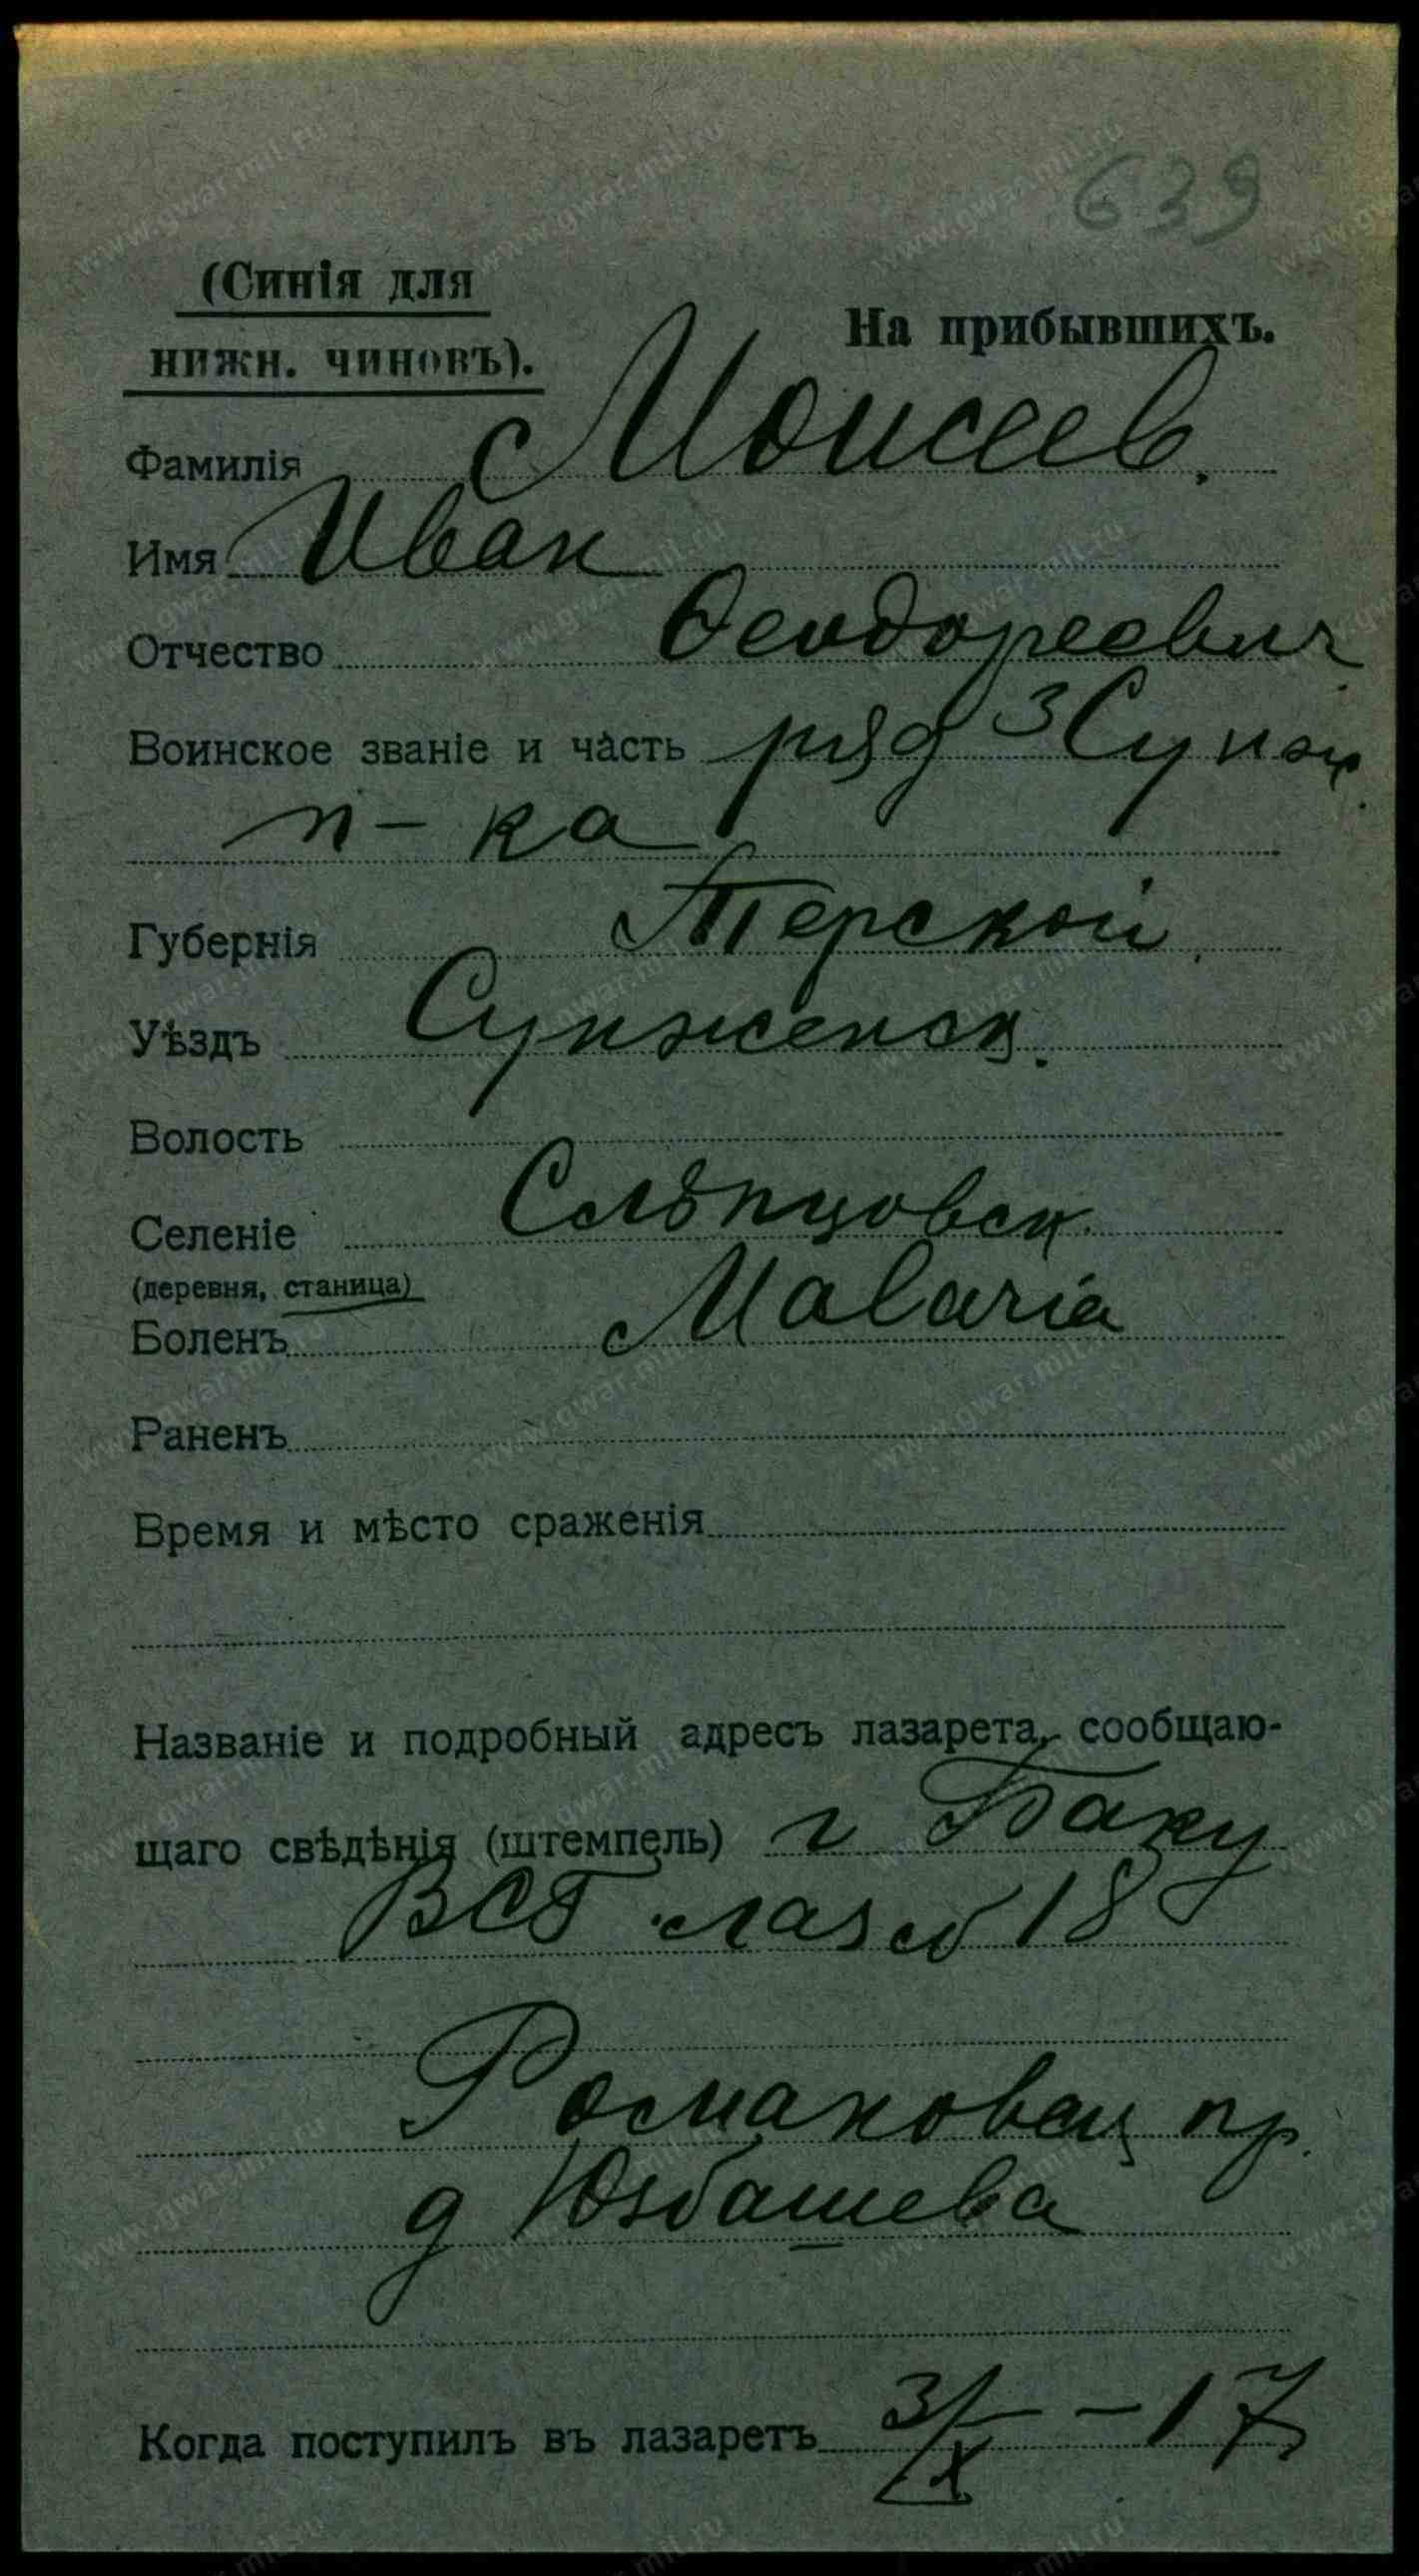 639
(Синія для
нижн. чиновъ).
На прибывшихъ.
Фамилія Моисеев.
Имя Иван
Отчество Феодореевич
Воинское званіе и часть ряд 3 Сунж.
п-ка
Губернія Терской
Уѣздъ Сунженск.
Волость
Селеніе Слѣпцовск.
(деревня, станица)
Боленъ Malaria
Раненъ
Время и мѣсто сраженія
Названіе и подробный адресъ лазарета, сообщаю-
щаго свѣдѣнія (штемпель) г Баку
ВСГ лаз № 18
Романовск пр.
д Юзбашева
Когда поступилъ въ лазаретъ 3/X - 17
www.gwar.mil.ru